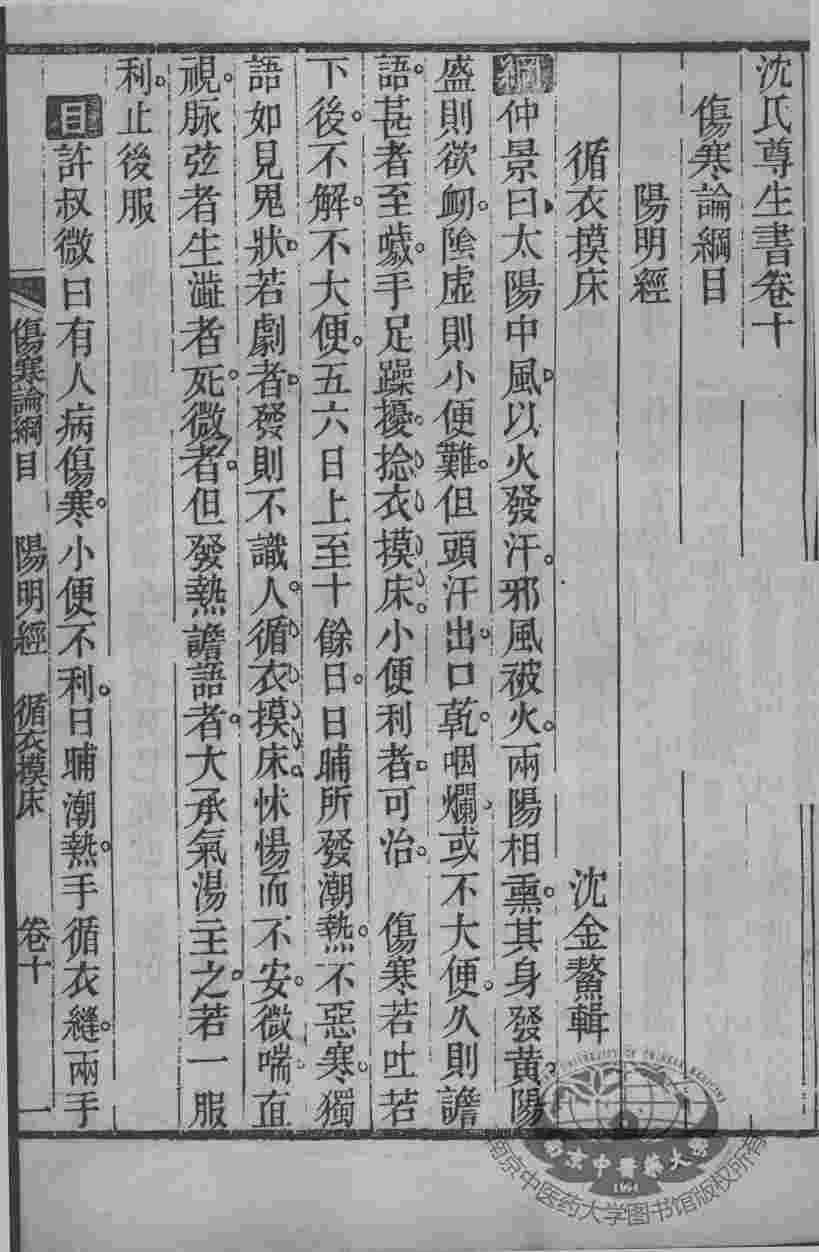 沈氏尊生書卷十
傷寒論綱目
陽明經
循衣摸床
沈金鰲輯
綱仲景曰太陽中風以火發汗。邪風被火。兩陽相熏。其身發黄。陽
盛則欲衂。陰虛則小便難。但頭汗出。口乾。咽爛、或不大便。久則譫
語。甚者至噦。手足躁擾。捻衣摸床。小便利者。可治。　傷寒若吐若
下後。不解。不大便。五六日上至十餘日。日晡所發潮熱。不惡寒。獨
語如見鬼狀。若劇者。發則不識人。循衣摸床。怵惕而不安。微喘直
視。脉弦者生。澁者死。微者。但發熱譫語者。大承氣湯主之。若一服
利。止後服
目許叔微曰有人病傷寒。小便不利。日晡潮熱。手循衣縫。兩手
傷寒論綱目　陽明經　循衣摸床　卷十　一
南京中醫藥大學
1954
南京中医药大学图书馆版权所有